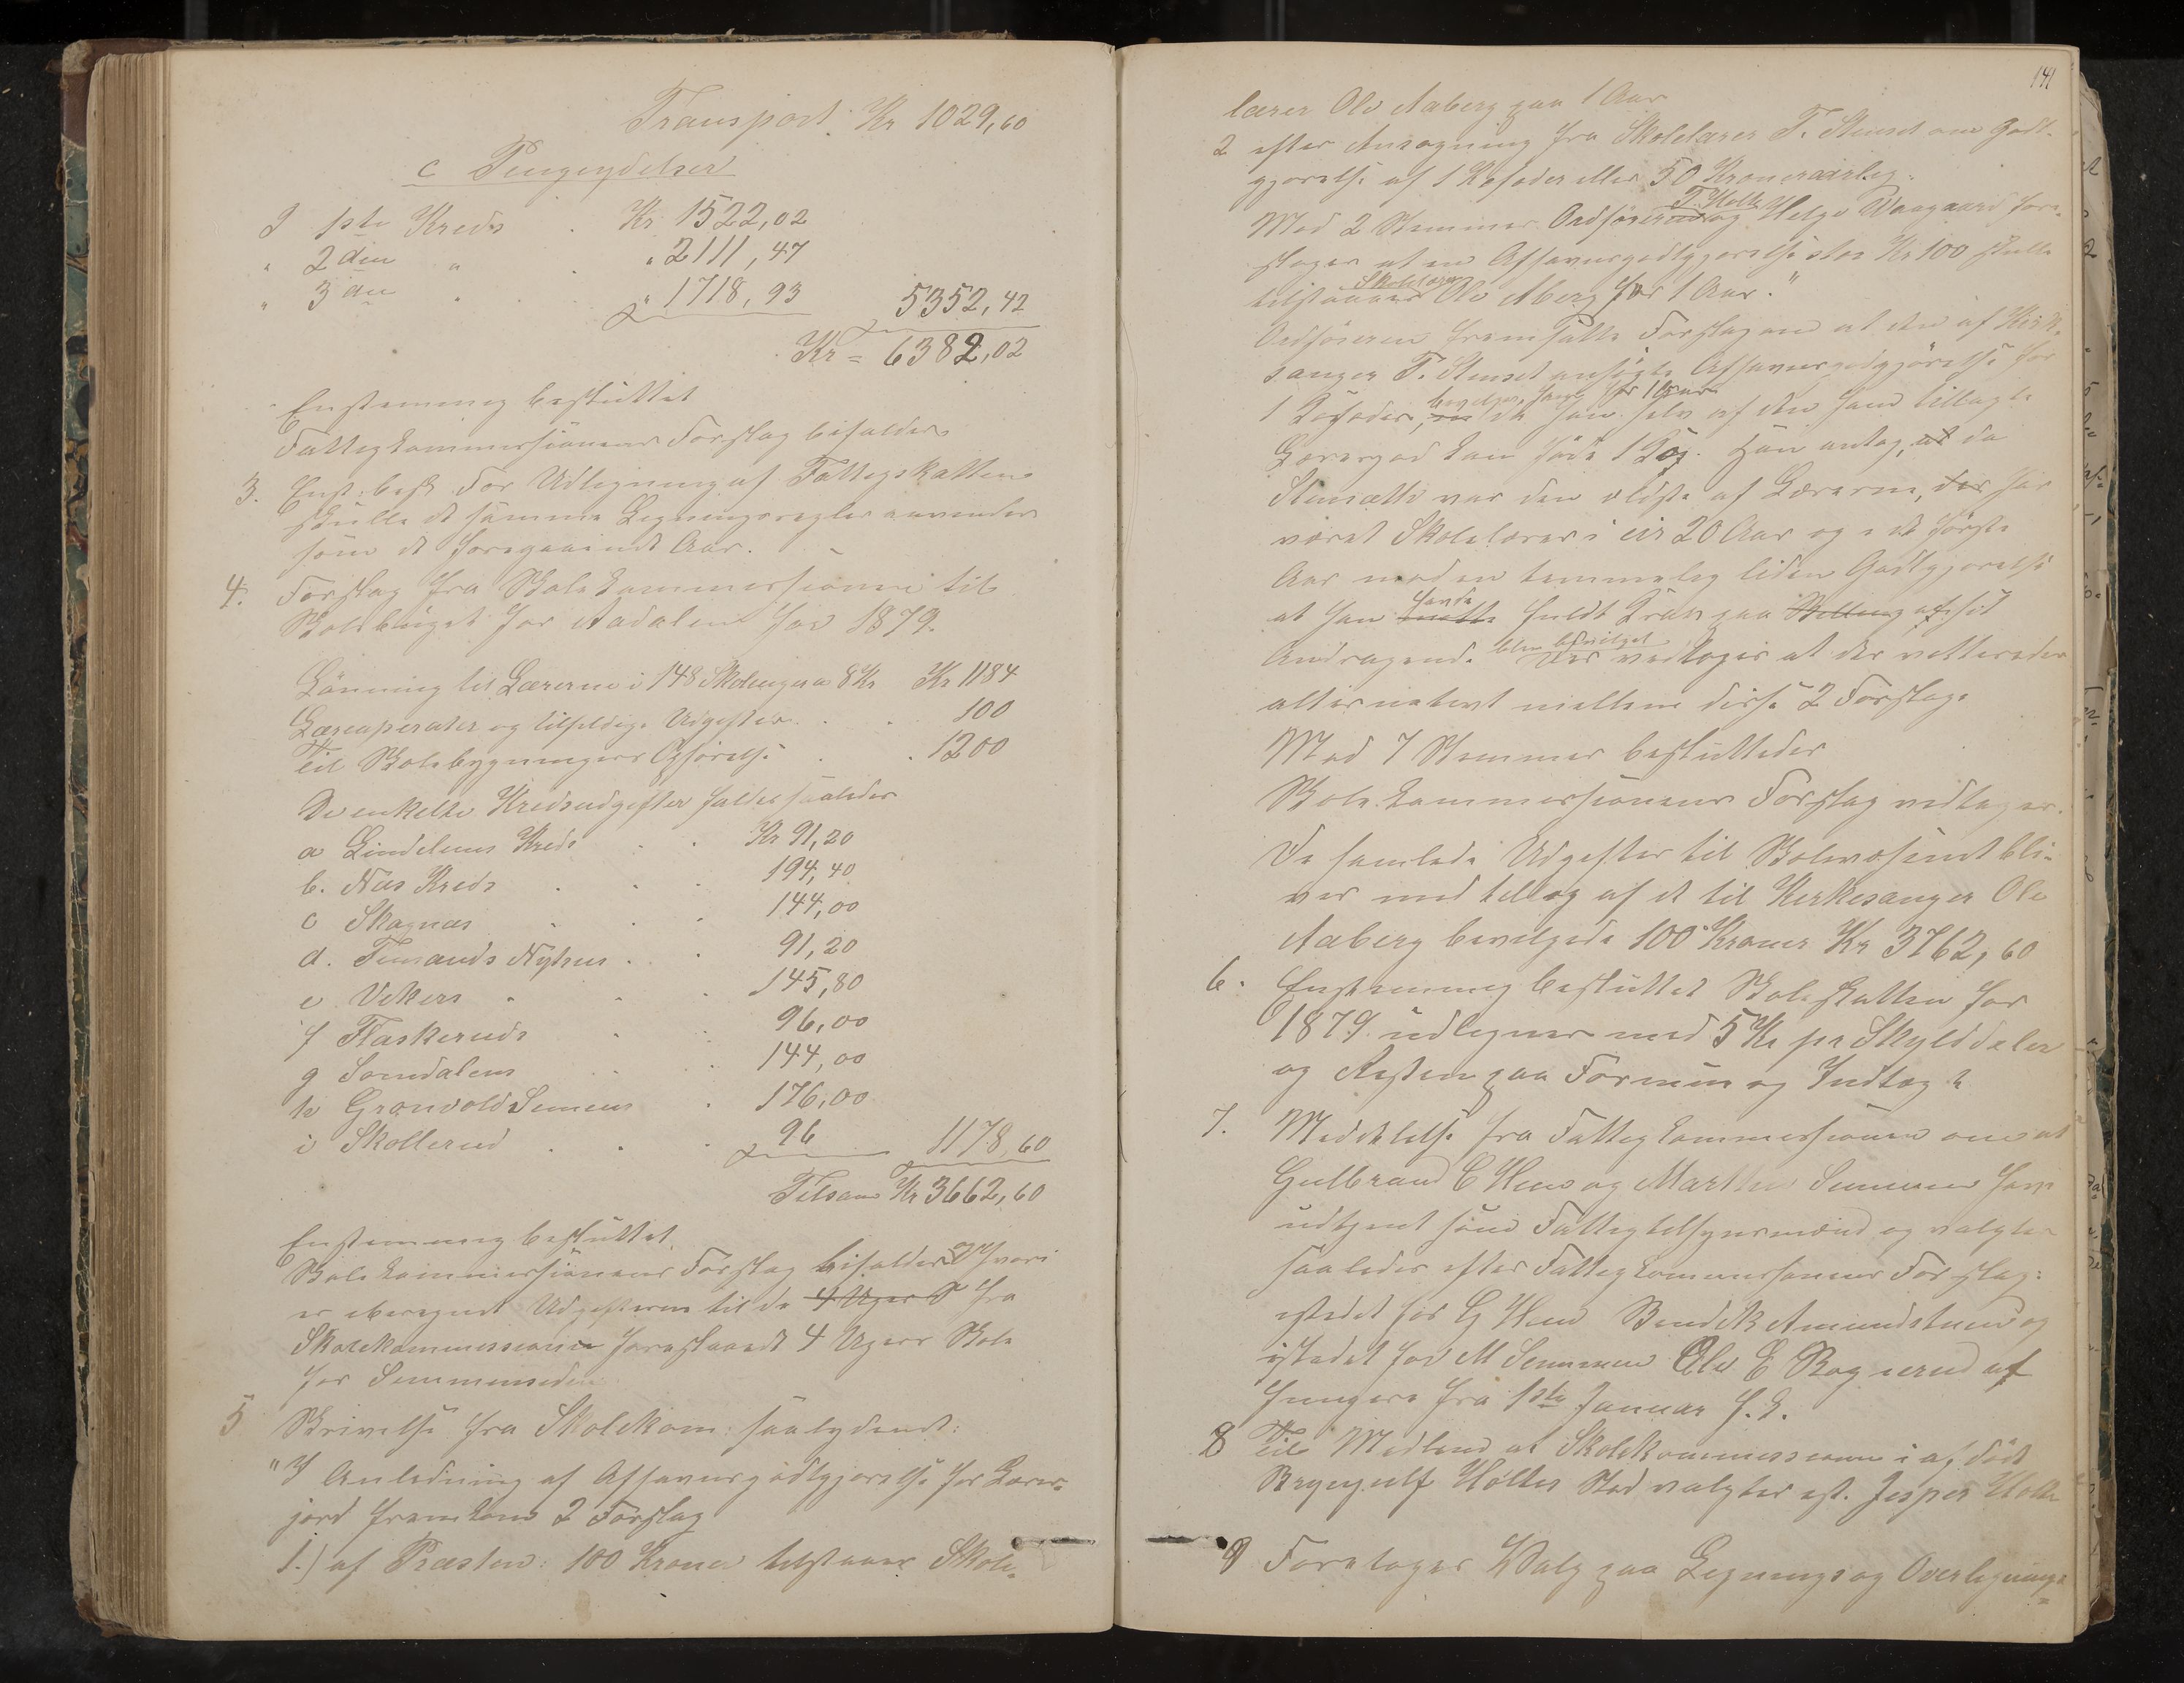 Transport Kr 1029,60
c Pengeydelser
I 1ste Kreds . Kr 1522,02
" 2den " . " 2111,47
" 3die " . " 1718,93 5352,42
Kr = 6382,02
Enstemmig besluttet
Fattigkommissionens Forslag bifaldes
3. Enst. besl. For Udligning af Fattigskatten
skulle de samme Ligningsregler anvendes
som det foregaaende Aar.
4. Forslag fra Skolekommissionen til
Skolebuget for Aadalen for 1879.
Lönning til Lærerne i 148 Skoleuger a 8 Kr Kr 1184
Læreaperater og tilfeldige Udgifter . . 100
Til Skolebygningers Opförelse . . 1200
De enkelte Kredsudgifter falder saaledes
a Lindeliens Kreds . . Kr 91,20
b. Næs Kreds . . . 194,40
c Skagnæs . . . 144,00
d. Finsands Nyhus . . 91,20
e Vikers . . . 145,80
f Flaskeruds . . 96,00
g Somdalens . . 144,00
h Grønvold Semmen . 176,00
i Skollerud . . . 96 1178,60
Tilsam Kr 3662,60
Enstemmig besluttet
Skolekommissionens Forslag bifaldes og hvori
er iberegnet Udgifterne til de 4 Uger S fra
Skolekommissionen foreslaaede 4 Ugers Skole
for Semmenseden
5 Skrivelse fra Skolekom. saalydende:
"I Anledning af Afsavnsgodtgjørelse for Lærer-
jord fremkom 2 Forslag
1.) af Præsten: 100 Kroner tilstaaes Skole-
141
lærer Ole Aaberg paa 1 Aar
2 efter Ansøgning fra Skolelærer T. Stenset om Godt-
gjørelse af 1 Kofoder eller 50 Kroner aarlig.
Med 2 Stemmer Ordføreren T. Holte og Helge Waagaard fore-
slages at en Afsavnsgodtgjørelse stor Kr 100 skulle
tilstaaes Skolelærer Ole Aberg for 1 Aar."
Ordföreren fremsatte Forslag om at den af Kirk-
sanger T. Stenset ansögte Afsavnsgodtgjörelse for
1 Kofoder, bevilges, for 1 Aar da han selv af den ham tillagte
Lærerjord kan föde 1 Ko. Han antog, at da
Stensæth var den ældste af Lærerne, der har
været Skolelærer i cir 20 Aar og i de förste
Aar med en temmelig liden Godtgjørelse
at han maatte havde fuldt Krav paa Stilling af sit
Andragende blev bevilget. Der vedtoges at der votteredes
alternativt mellem disse 2 Forslag.
Med 7 Stemmer besluttedes
Skolekommissionens Forslag vedtages.
De samlede Udgifter til Skolevæsenet bli-
ver med tillæg af de til Kirkesanger Ole
Aaberg bevilgede 100 Kroner Kr 3762,60
6. Enstemmig besluttet Skoleskatten for
1879 udlignes med 5 Kr pr Skylddaler
og Resten paa Formue og Indtægt
7. Meddelelse fra Fattigkommissionen om at
Gulbrand C Hen og Marthin Semmen har
udtjent som Fattigtilsynsmænd og valgtes
saaledes efter Fattigkommissionens Forslag:
istedet for G Hen Bendik Amundstuen og
istedet for M Semmen Ole E Bogerud at
fungere fra 1ste Januar f. A.
8 Til Medlem af Skolekommissionen i afdöde
Brynjulf Holtes Sted valgtes est. Jesper Holte
9 Foretoges Valg paa Ligning og Overligning-